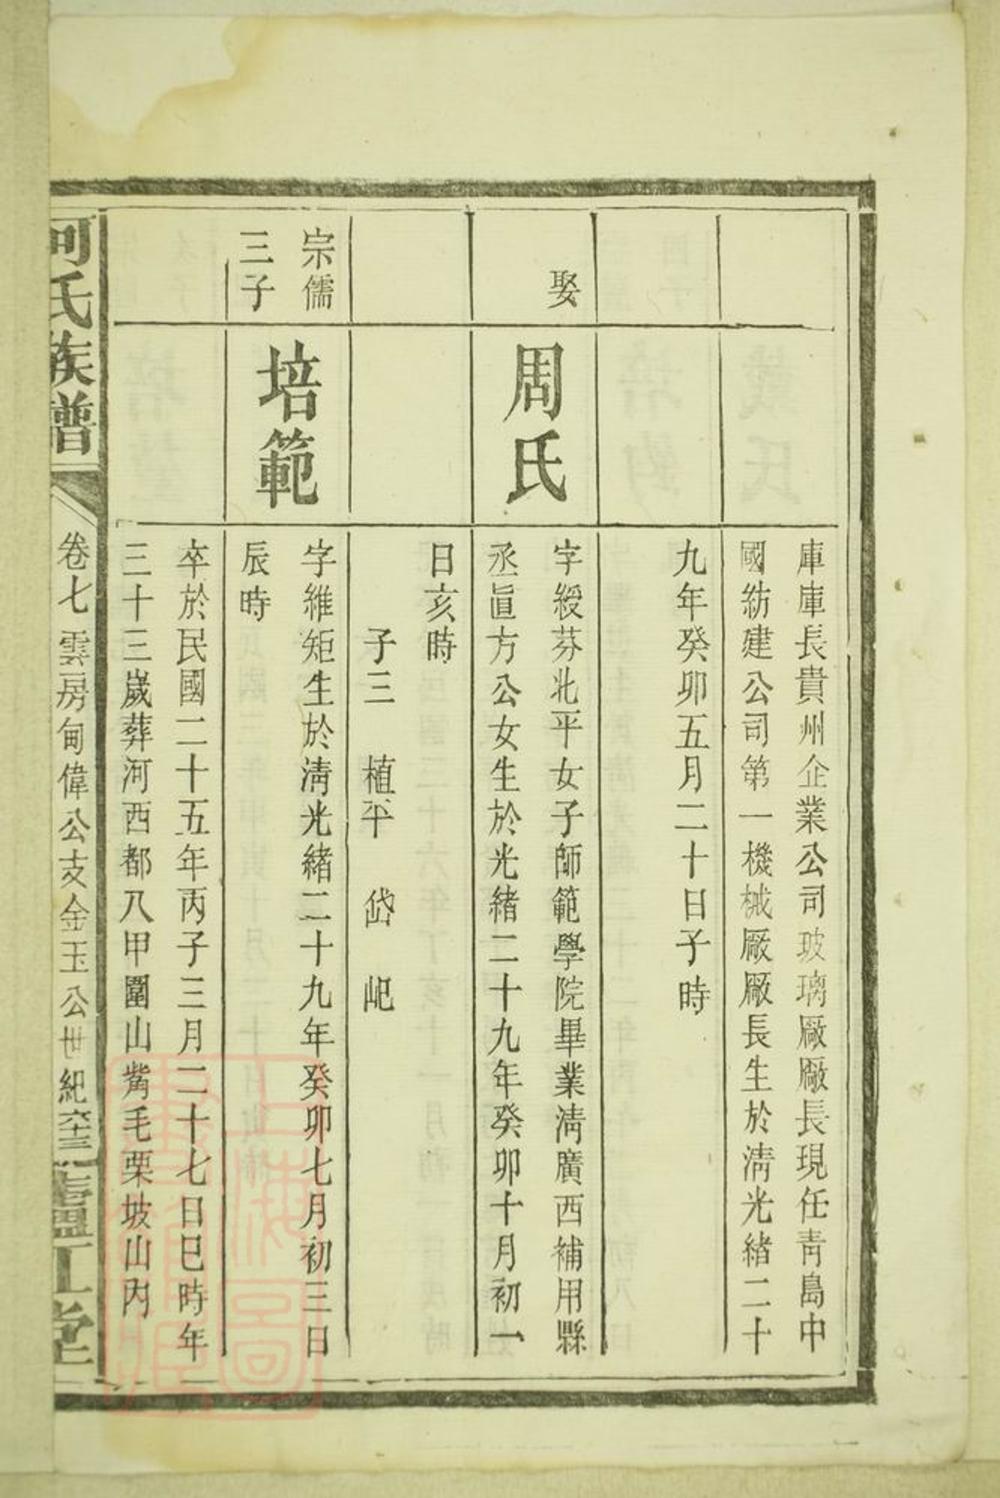 庫庫長貴州企業公司玻璃厰厰長現任青島中
國紡建公司第一機械厰厰長生於淸光緒二十
九年癸卯五月二十日子時
娶
周氏
字綬芬北平女子師範學院畢業淸廣西補用縣
丞眞方公女生於光緒二十九年癸卯十月初一
日亥時
子三 植平 岱 屺
宗儒
三子
培範
字維矩生於淸光緒二十九年癸卯七月初三日
辰時
卒於民國二十五年丙子三月二十七日巳時年
三十三歲葬河西都八甲圍山觜毛栗坡山內
何氏族譜
卷七 雲房甸偉公支金玉公世紀
廬江堂
上海圖書館藏